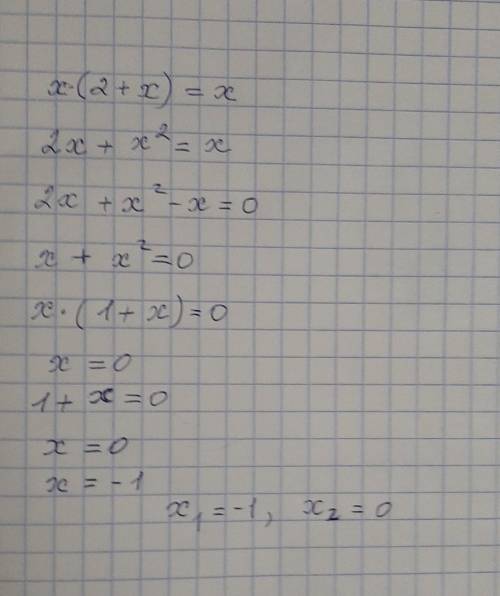 x·(2+x) = x
2x + x² = x
2x + x² - x = 0
x + x² = 0
x·(1+x) = 0
x = 0
1 + x = 0
x = 0
x = -1
x₁ = -1, x₂ = 0